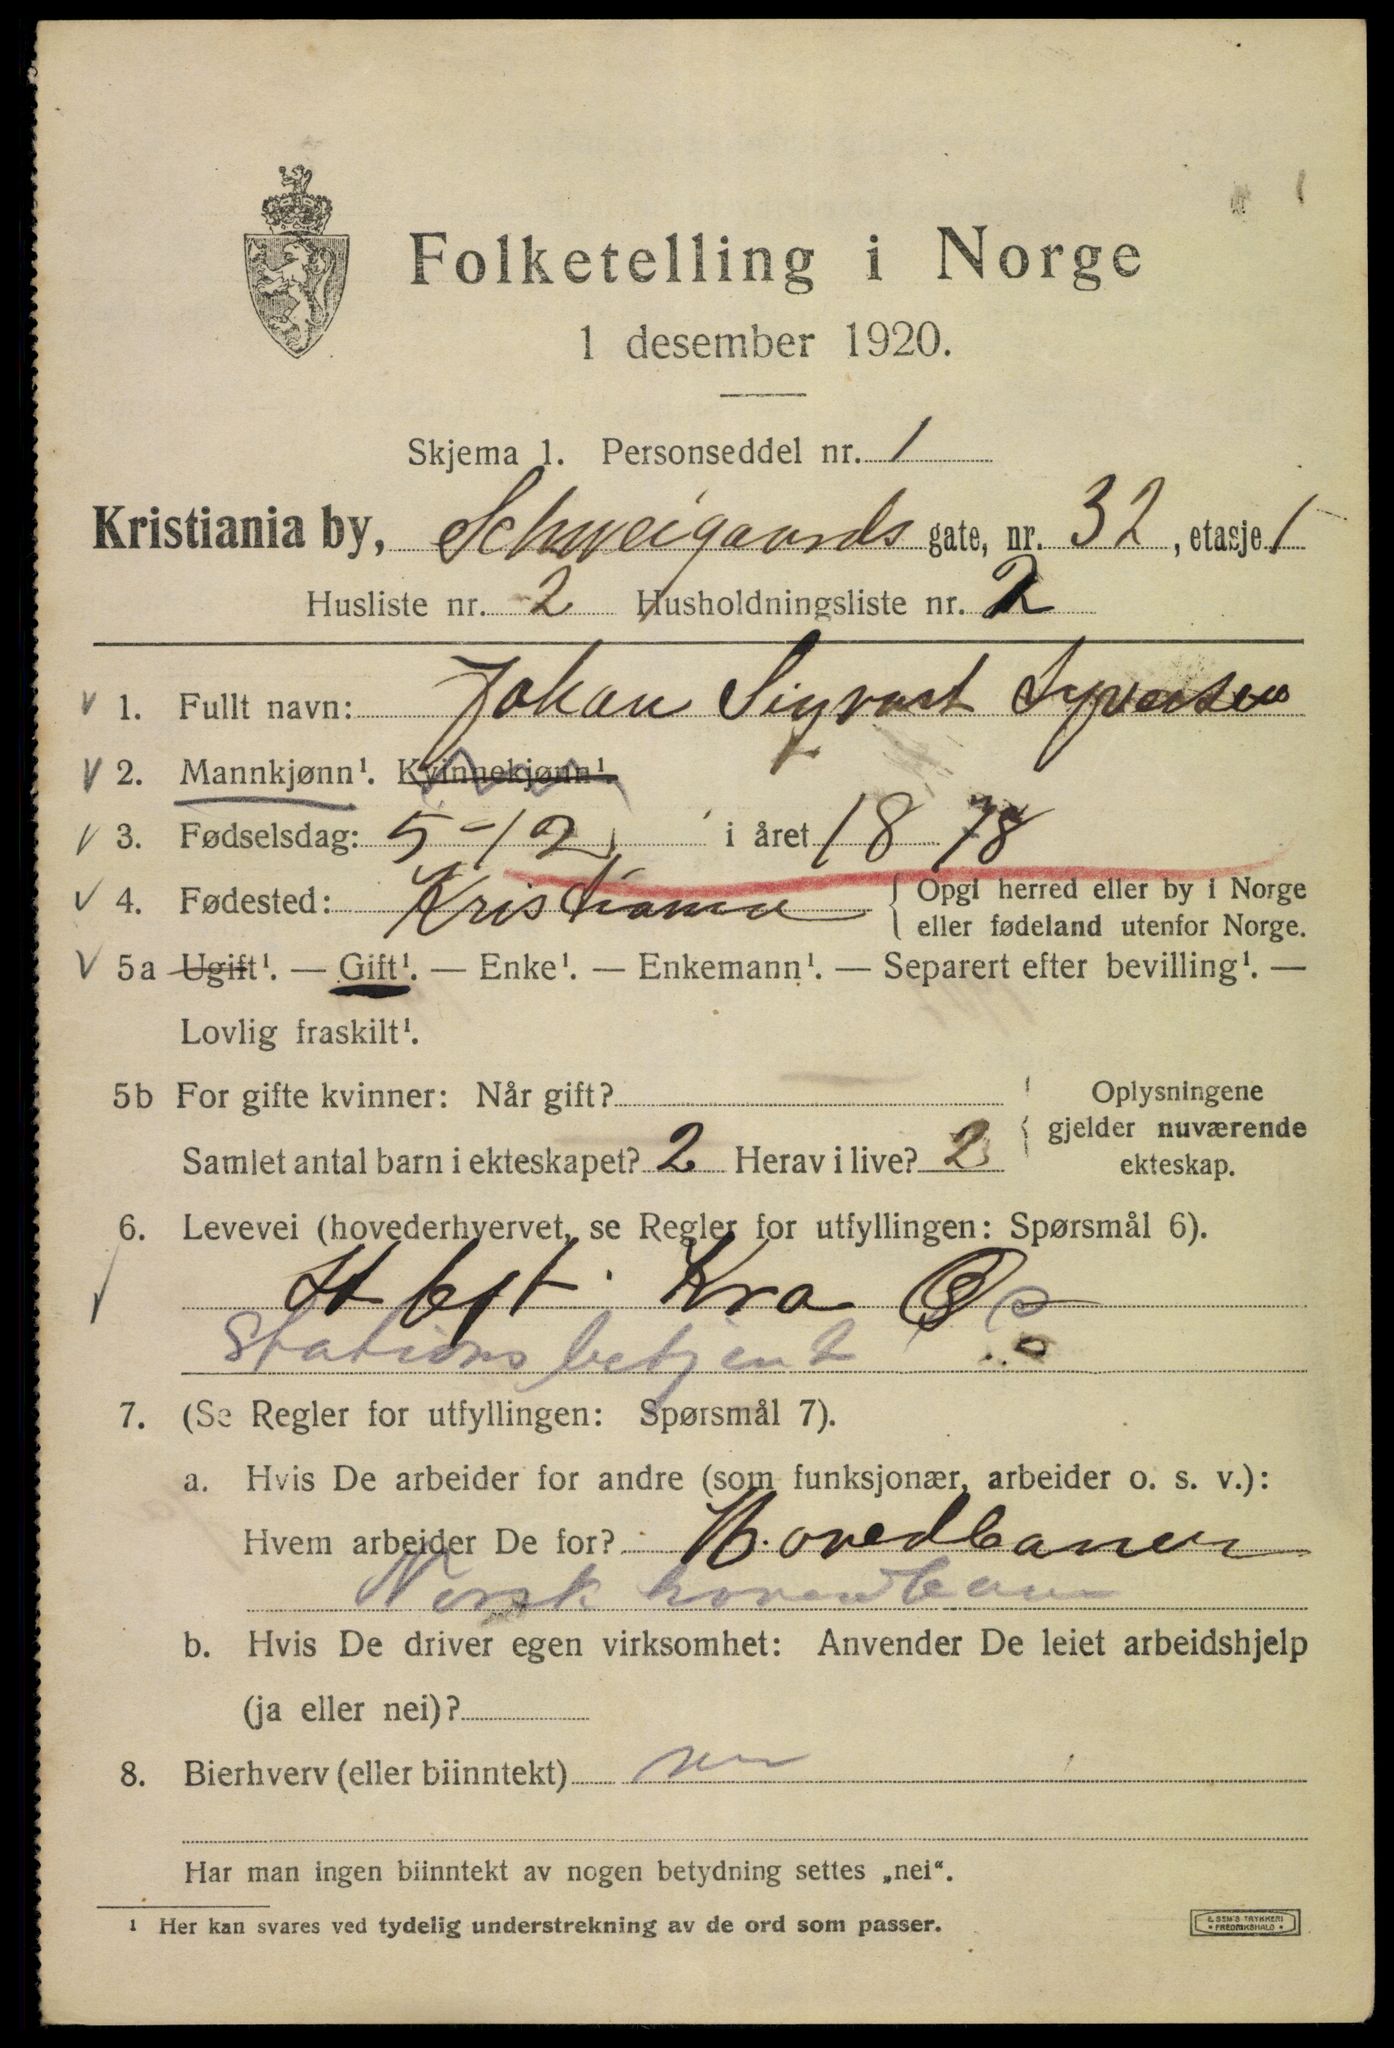 Folketelling i Norge
1 desember 1920.
Skjema 1. Personseddel nr. 1
Kristiania by, Schweigaards gate, nr. 32, etasje 1
Husliste nr. 2 Husholdningsliste nr. 2
1. Fullt navn: Johan Sigvart Syversen
2. Mannkjønn¹. Kvinnekjønn¹.
3. Fødselsdag: 5-12 i året 1878
4. Fødested: Kristiania { Opgi herred eller by i Norge
eller fødeland utenfor Norge.
5a Ugift¹. — Gift¹. — Enke¹. — Enkemann¹. — Separert efter bevilling¹. —
Lovlig fraskilt¹.
5b For gifte kvinner: Når gift? Oplysningene
gjelder nuværende
Samlet antal barn i ekteskapet? 2 Herav i live? 2 ekteskap.
6. Levevei (hovederhvervet, se Regler for utfyllingen: Spørsmål 6).
St btjt. Kra Ø
Stationsbetjent
7. (Se Regler for utfyllingen: Spørsmål 7).
a. Hvis De arbeider for andre (som funksjonær, arbeider o. s. v.):
Hvem arbeider De for? Hovedbanen
Norsk hovedbane
b. Hvis De driver egen virksomhet: Anvender De leiet arbeidshjelp
(ja eller nei)?
8. Bierhverv (eller biinntekt) nei
Har man ingen biinntekt av nogen betydning settes „nei“.
¹ Her kan svares ved tydelig understrekning av de ord som passer.
E. SEM'S TRYKKERI
* FREDRIKSHALD *